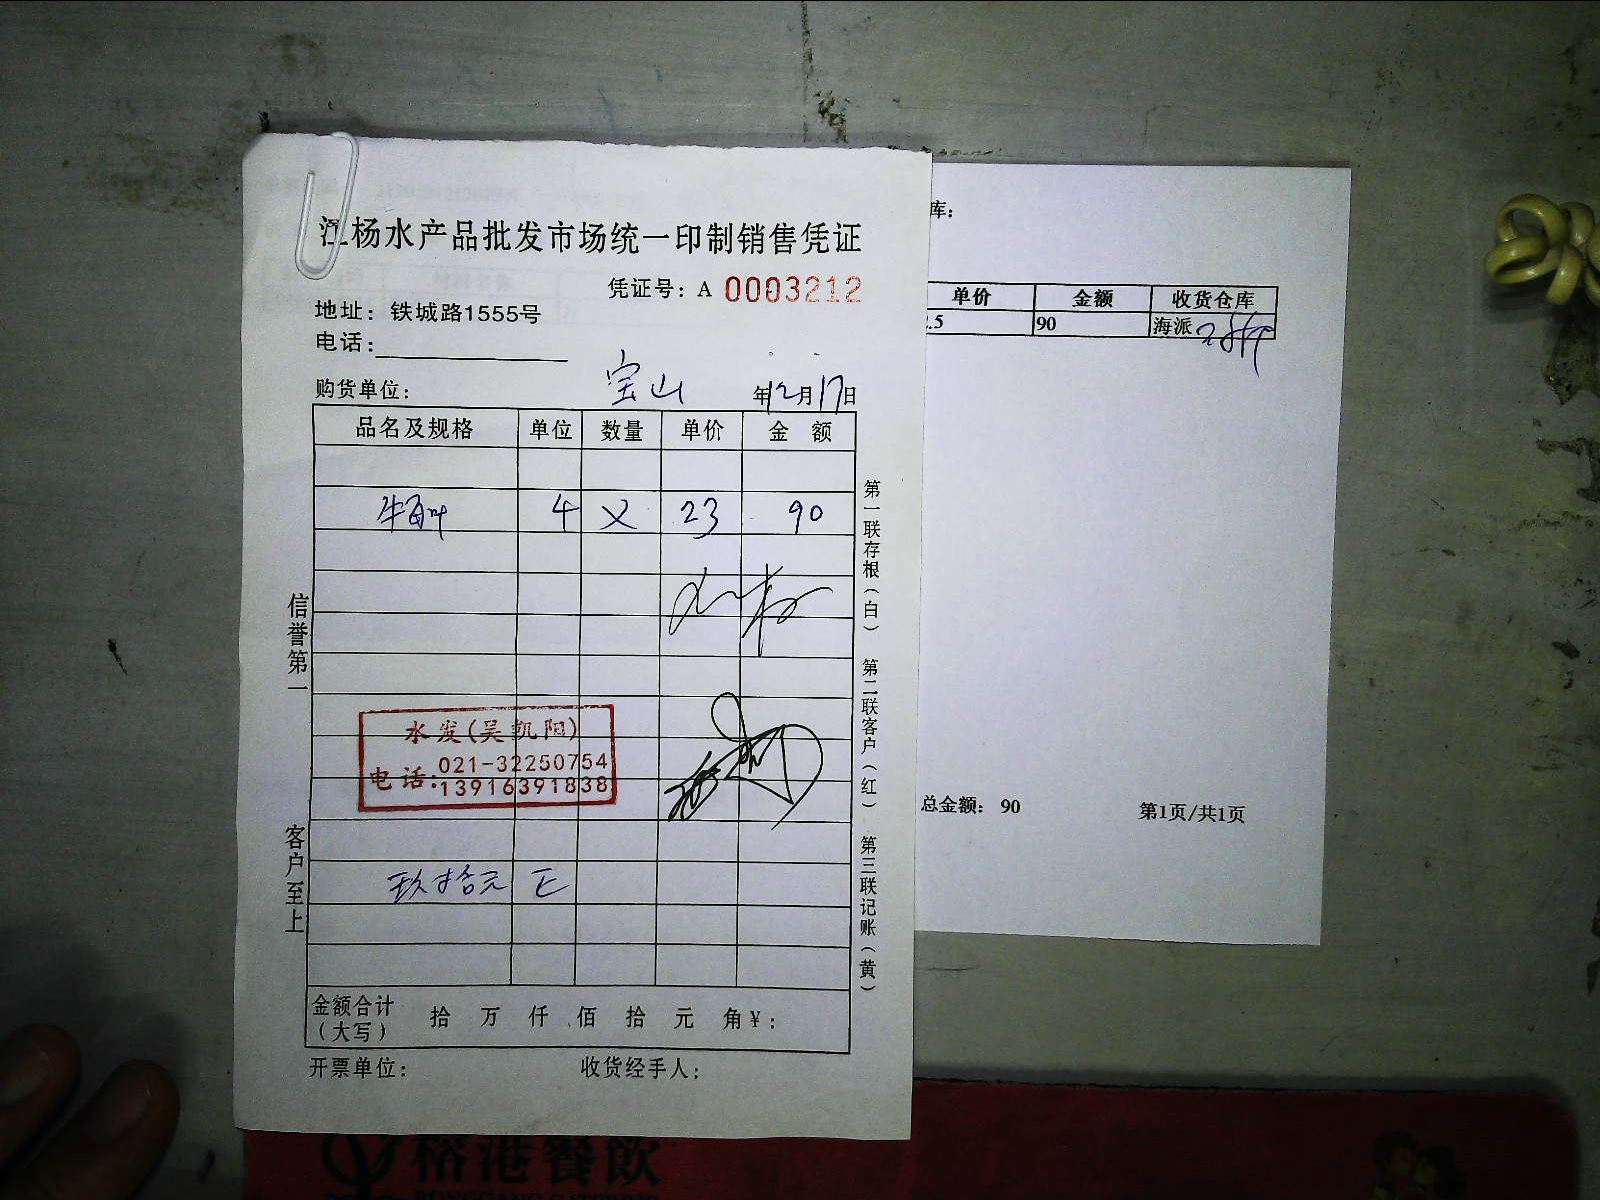 江杨水产品批发市场统一印制销售凭证
凭证号：A 0003212
地址：铁城路1555号
电话：
购货单位： 宝山 年12月17日
品名及规格 单位 数量 单价 金 额
牛百叶 4 × 23 90
水发(吴凯阳)
电话：021-32250754
13916391838
玖拾元正
金额合计（大写） 拾 万 仟 佰 拾 元 角 ¥：
开票单位： 收货经手人：
信誉第一
客户至上
第一联存根（白） 第二联客户（红） 第三联记账（黄）
库：
单价 金额 收货仓库
.5 90 海派
总金额： 90 第1页/共1页
榕港餐饮